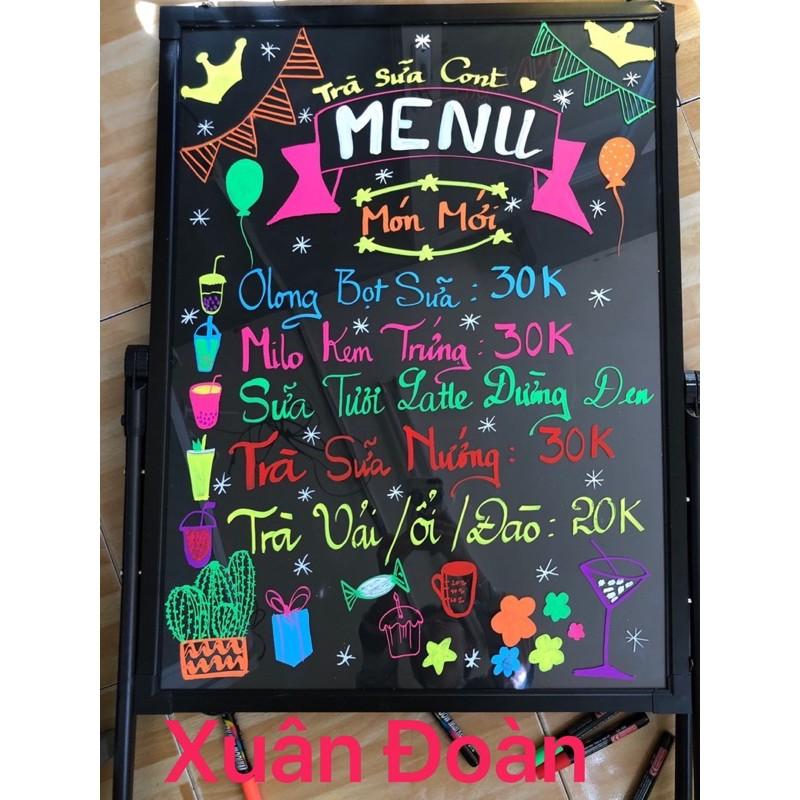 Trà Sữa Cont
MENU
Món Mới
Olong Bọt Sữa : 30K
Milo Kem Trứng : 30K
Sữa Tươi Latte Đường Đen
Trà Sữa Nướng : 30K
Trà Vải / ổi / Đào : 20K
Xuân Đoàn